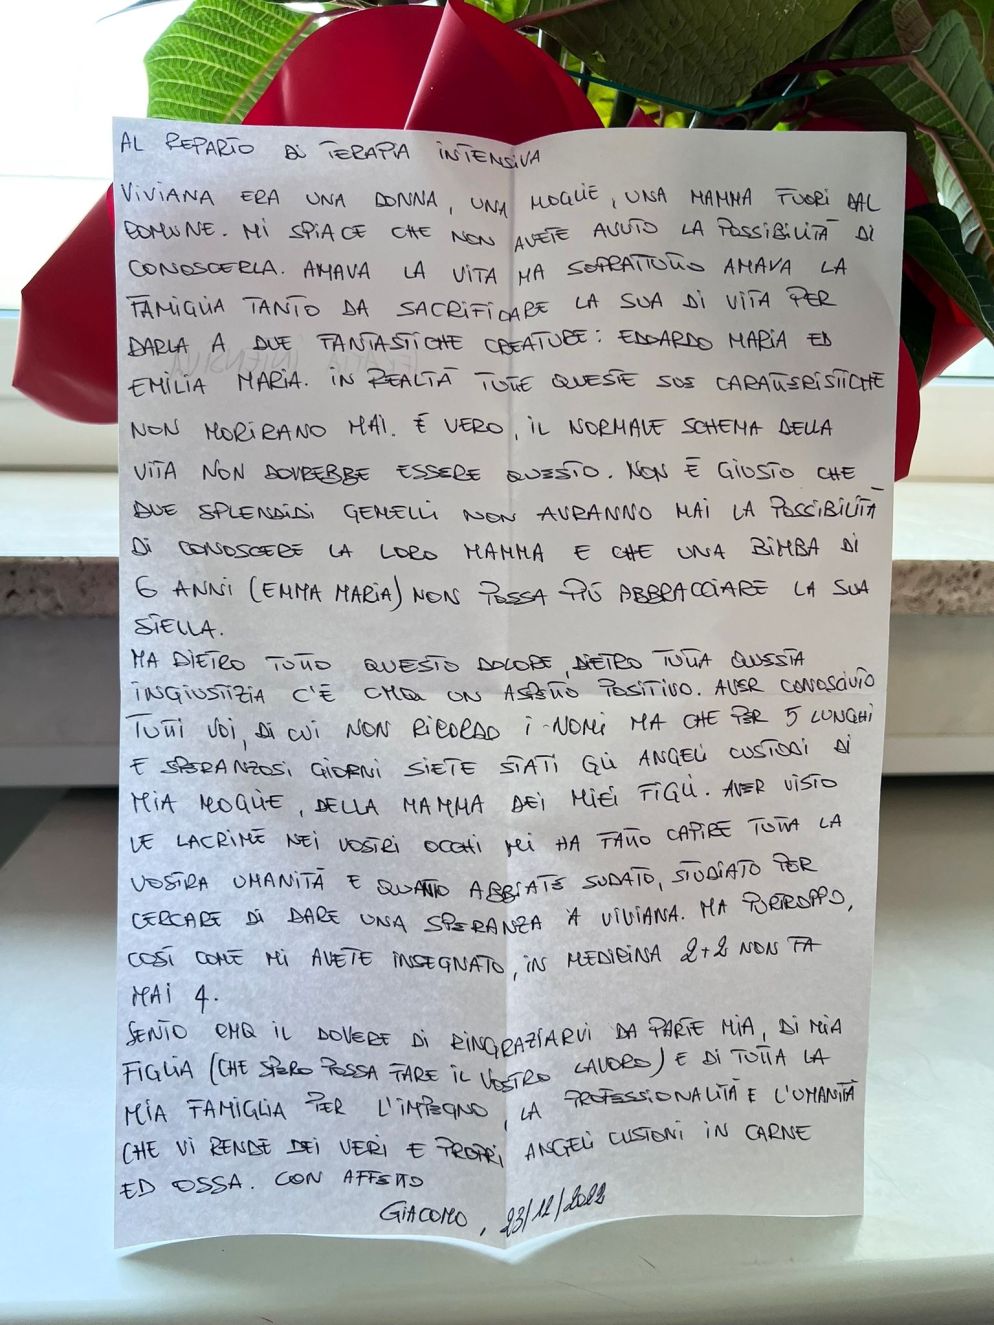 AL REPARTO DI TERAPIA INTENSIVA
VIVIANA ERA UNA DONNA, UNA MOGLIE, UNA MAMMA FUORI DAL
COMUNE. MI SPIACE CHE NON AVETE AVUTO LA POSSIBILITÀ DI
CONOSCERLA. AMAVA LA VITA MA SOPRATTUTTO AMAVA LA
FAMIGLIA TANTO DA SACRIFICARE LA SUA DI VITA PER
DARLA A DUE FANTASTICHE CREATURE: EDOARDO MARIA ED
EMILIA MARIA. IN REALTÀ TUTTE QUESTE SUE CARATTERISTICHE
NON MORIRANO MAI. È VERO, IL NORMALE SCHEMA DELLA
VITA NON DOVREBBE ESSERE QUESTO. NON È GIUSTO CHE
DUE SPLENDIDI GEMELLI NON AVRANNO MAI LA POSSIBILITÀ
DI CONOSCERE LA LORO MAMMA E CHE UNA BIMBA DI
6 ANNI (EMMA MARIA) NON POSSA PIÙ ABBRACCIARE LA SUA
STELLA.
MA DIETRO TUTTO QUESTO DOLORE, DIETRO TUTTA QUESTA
INGIUSTIZIA C'È CMQ UN ASPETTO POSITIVO. AVER CONOSCIUTO
TUTTI VOI, DI CUI NON RICORDO I NOMI MA CHE PER 5 LUNGHI
E SPERANZOSI GIORNI SIETE STATI GLI ANGELI CUSTODI DI
MIA MOGLIE, DELLA MAMMA DEI MIEI FIGLI. AVER VISTO
LE LACRIME NEI VOSTRI OCCHI MI HA FATTO CAPIRE TUTTA LA
VOSTRA UMANITÀ E QUANTO ABBIATE SUDATO, STUDIATO PER
CERCARE DI DARE UNA SPERANZA A VIVIANA. MA PURTROPPO,
COSÌ COME MI AVETE INSEGNATO, IN MEDICINA 2+2 NON FA
MAI 4.
SENTO CMQ IL DOVERE DI RINGRAZIARVI DA PARTE MIA, DI MIA
FIGLIA (CHE SPERO POSSA FARE IL VOSTRO LAVORO) E DI TUTTA LA
MIA FAMIGLIA PER L'IMPEGNO, LA PROFESSIONALITÀ E L'UMANITÀ
CHE VI RENDE DEI VERI E PROPRI ANGELI CUSTODI IN CARNE
ED OSSA. CON AFFETTO
GIACOMO, 23/12/2022